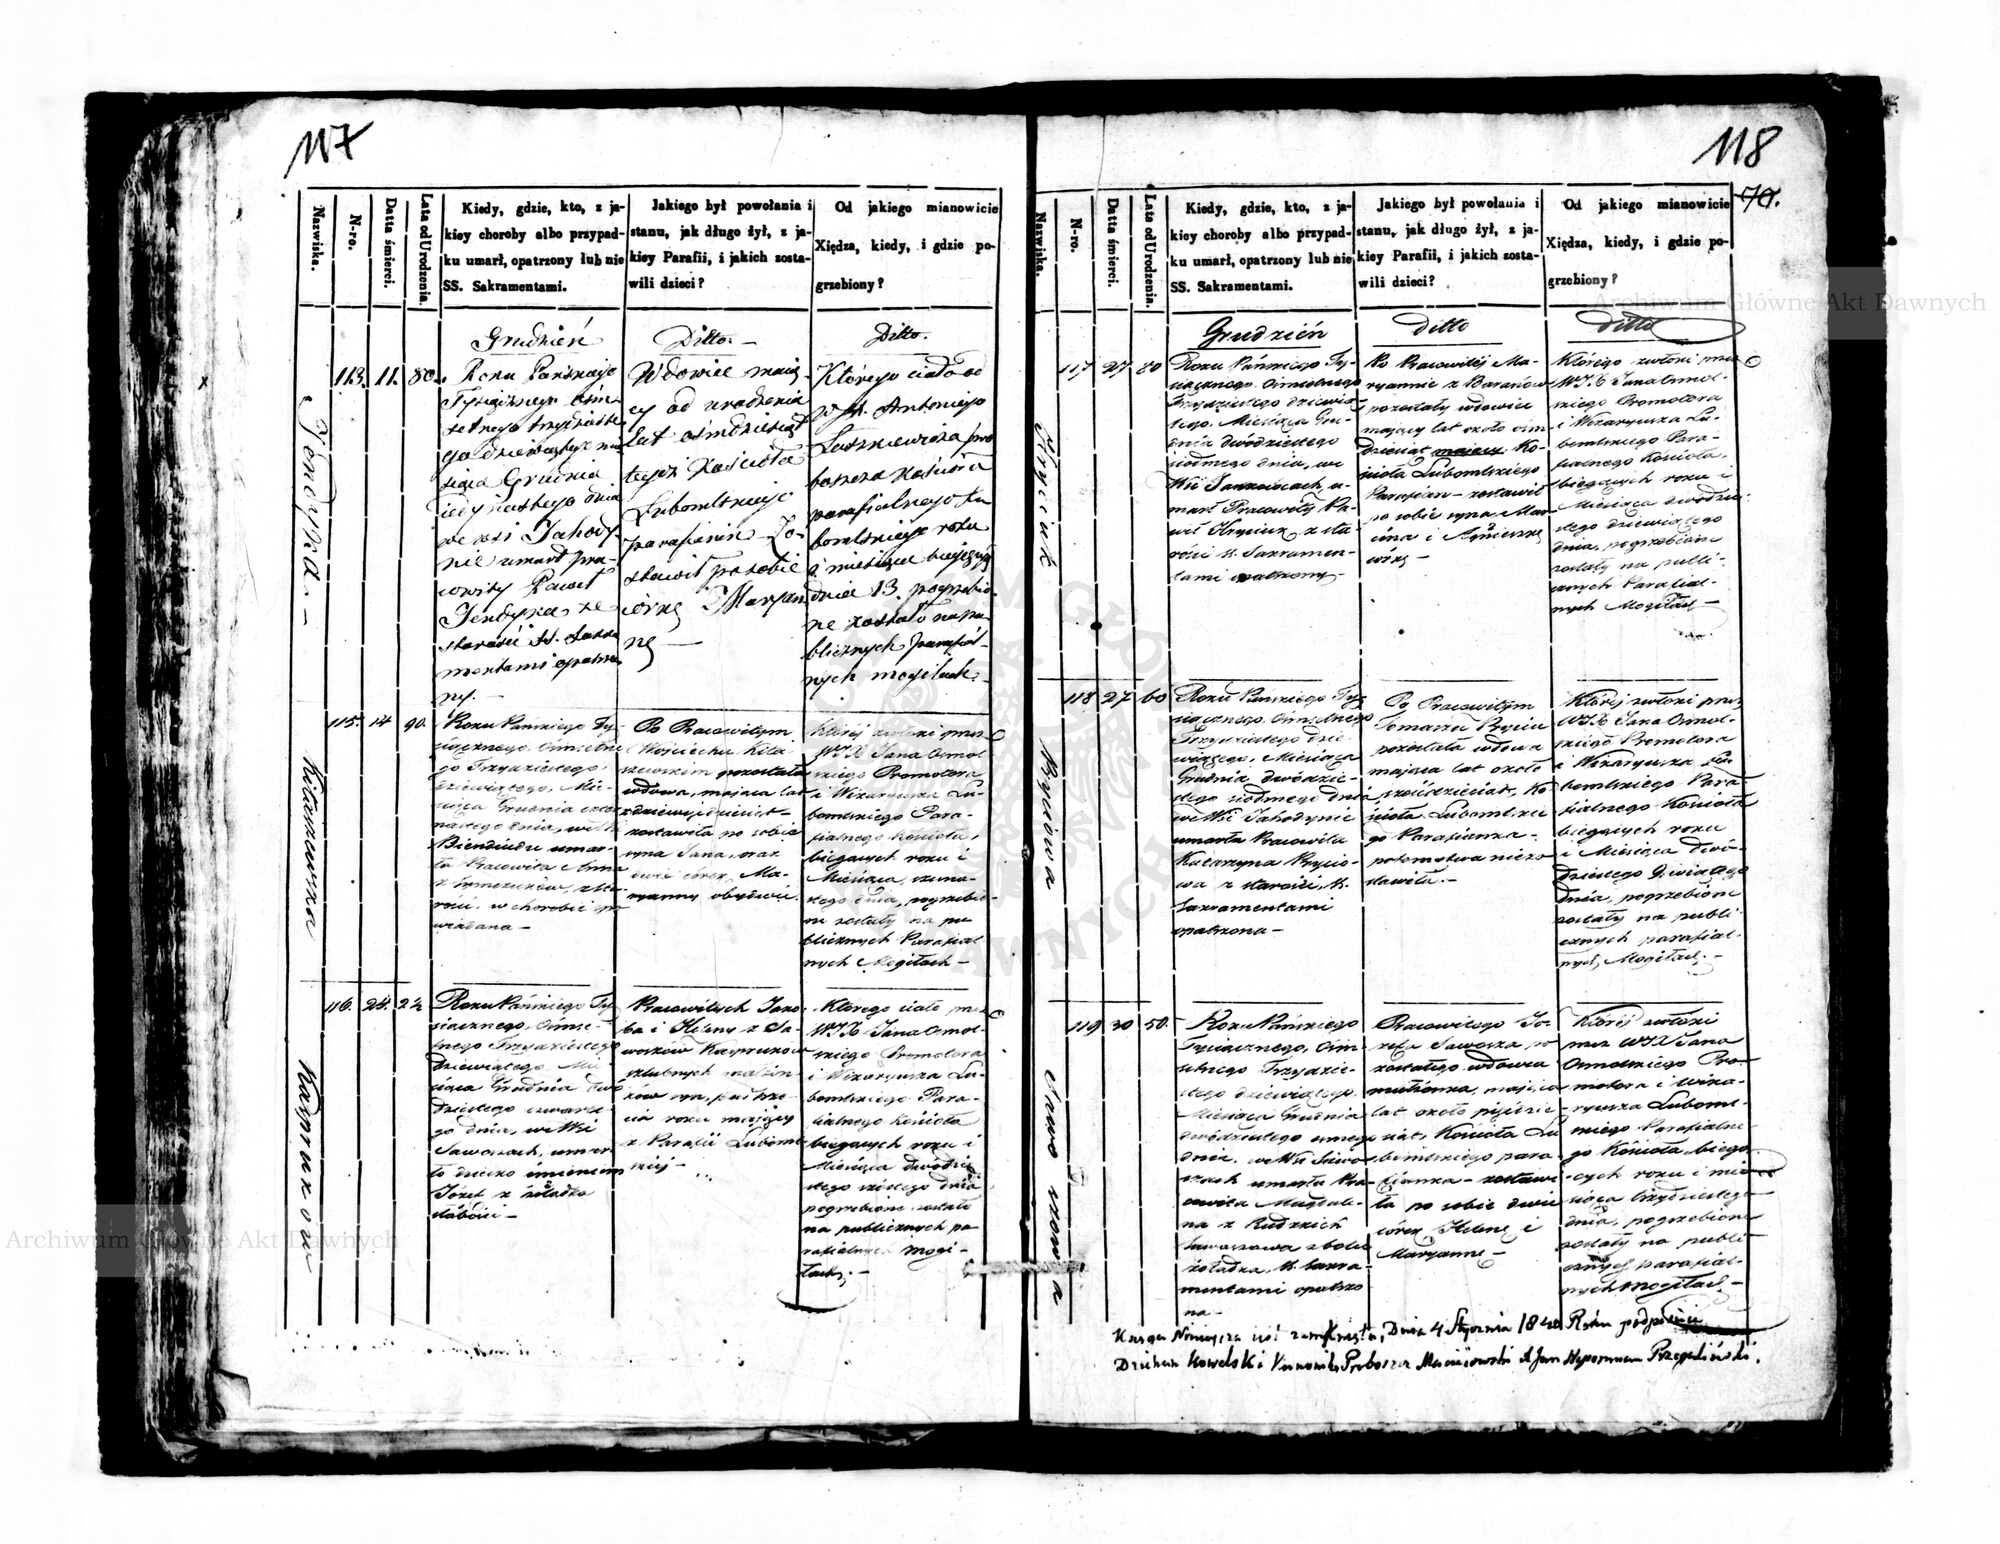 117
Nazwiska.
N-ro.
Datta śmierci.
Lata od Urodzenia.
Kiedy, gdzie, kto, z ja-
kiey choroby albo przypad-
ku umarł, opatrzony lub nie
SS. Sakramentami.
Jakiego był powołania i
stanu, jak długo żył, z ja-
kiey Parafii, i jakich zosta-
wili dzieci?
Od jakiego mianowicie
Xiędza, kiedy, i gdzie po-
grzebiony?
Grudzień
Ditto. –
Ditto.
Jendyka. –
113. 11. 80.
Roku Pańskiego
Tysiącznego Ośm
setnego trzydziste
go dziewiątego mie
siąca Grudnia
jedynastego dnia
we wsi Jahody-
nie umarł pra-
cowity Paweł
Jendyka ze
starości SS. Sakra
mentami opatrzo
ny. –
Wdowiec mają-
cy od urodzenia
lat ośmdziesiąt
tegoż kościoła
Lubomlskiego
parafianin Zo-
stawił po sobie
córkę Maryan
nę –
Którego ciało od
Antoniego
Łuszkiewicza pro
boszcza kościoła
parafialnego Lu
bomlskiego roku
i miesiąca bieżącego
dnia 13. pogrzebio-
ne zostało na pu
blicznych parafial-
nych mogiłach. –
Kitaszewska
115. 14 90.
Roku Pańskiego Ty-
siącznego Ośmsetne
go Trzydziestego
dziewiątego, Mie-
siąca Grudnia czter
nastego dnia, we Wsi
Biendudze umar-
ła Pracowita Anna
z Szymczuków, z sta-
rości, w chorobie spo
wiadana –
Po Pracowitym
Wojciechu Kita
szewskim pozostała
wdowa, mająca lat
dziewięćdziesiąt –
zostawiła po sobie
syna Jana, oraz
dwie córek, Ma-
ryanny obydwie.
Której zwłoki przez
WJX Jana Osmol-
skiego Promotora
i Wikaryusza Lu-
bomlskiego Para-
fialnego Kościoła,
bieżących roku i
Miesiąca, szesna-
stego dnia, pogrzebio-
ne zostały na pu
blicznych Parafial
nych Mogiłach –
Kasprukow
116. 24. 2½
Roku Pańskiego Ty-
siącznego, Ośmse-
tnego Trzydziestego
dziewiątego Mie-
siąca Grudnia dwó
dziestego czwarte-
go dnia, we Wsi
Saworach, umar-
ło dziecko imieniem
Józef z żołądka
słabości –
Pracowitych Jako
ba i Heleny z Sa-
woszów Kaspruków
szlubnych małżon-
ków syn, pół trze-
cia roku mający
z Parafii Luboml-
skiej –
Którego ciało przez
WJX Jana Osmol-
skiego Promotora
i Wikaryusza Lu-
bomlskiego Para-
fialnego Kościoła
bieżących roku i
Miesiąca dwódzie-
stego szóstego dnia
pogrzebione zostało
na publicznych pa-
rafialnych Mogi-
łach. –
118
70.
Nazwiska.
N-ro.
Datta śmierci.
Lata od Urodzenia.
Kiedy, gdzie, kto, z ja-
kiey choroby albo przypad-
ku umarł, opatrzony lub nie
SS. Sakramentami.
Jakiego był powołania i
stanu, jak długo żył, z ja-
kiey Parafii, i jakich zosta-
wili dzieci?
Od jakiego mianowicie
Xiędza, kiedy, i gdzie po-
grzebiony?
Grudzień
ditto
ditto
Hryciuk
117 27 80
Roku Pańskiego Ty-
siącznego Ośmsetnego
Trzydziestego dziewią-
tego, Miesiąca Gru-
dnia dwódziestego
siódmego dnia, we
Wsi, u-
marł Pracowity Pa-
weł Hryciuk z sta-
rości SS. Sakramen-
tami opatrzony –
Po Pracowitej Ma-
ryannie z Baranów
pozostały wdowiec
mający lat około ośm
dziesiąt mający Ko-
ścioła Lubomlskiego
Parafian – zostawił
po sobie syna Mar
cina i Agnieszkę
córkę –
Którego zwłoki przez
WJX Jana Osmol-
skiego Promotora
i Wikaryusza Lu-
bomlskiego Para-
fialnego Kościoła,
bieżących roku i
Miesiąca dwódzie-
stego dziewiątego
dnia, pogrzebione
zostały na publi-
cznych Parafial-
nych Mogiłach –
Bryciowa
118 27 60
Roku Pańskiego Ty-
siącznego, Ośmsetnego
Trzydziestego dzie-
wiątego, Miesiąca
Grudnia dwódzie-
stego siódmego dnia
we Wsi Jahodynie
umarła Pracowita
Katarzyna Brycio-
wa z starości, SS.
Sakramentami
opatrzona –
Po Pracowitym
Tomaszu Bryciu
pozostała wdowa
mająca lat około
sześćdziesiąt, Ko-
ścioła Lubomlskie
go Parafianka –
potomstwa niezo
stawiła. –
Której zwłoki przez
WJX Jana Osmol-
skiego Promotora
i Wikaryusza Lu-
bomlskiego Para
fialnego Kościoła
bieżących roku
i Miesiąca dwó-
dziestego dziewiątego
dnia, pogrzebione
zostały na publi-
cznych parafial-
nych Mogiłach. –
Sawoszowa
119 30 50.
Roku Pańskiego
Tysiącznego, Ośm-
setnego Trzydzie-
stego dziewiątego.
Miesiąca Grudnia
dwódziestego osmego
dnia, we Wsi Sawo-
szach umarła Pra-
cowita Magdale-
na z Rudzkich
Sawoszowa z bolu
żołądka, SS. Sakra-
mentami opatrzo
na –
Pracowitego Jó-
zefa Sawosza, po
zostałego wdowca
małżonka, mająca
lat około pięćdzie
siąt, Kościoła Lu
bomlskiego para-
fianka – zostawi
ła po sobie dwie
córek, Helenę i
Maryannę –
Której zwłoki
przez WJX Jana
Osmolskiego Pro-
motora i Wika-
ryusza Luboml-
skiego Parafialne
go Kościoła, bieżą
cych roku i mie-
siąca trzydziestego
dnia, pogrzebione
zostały na publi-
cznych parafial-
nych Mogiłach –
Księga Niniejsza jest zamknięta, Dnia 4 Stycznia 1840 Roku podpisuie
Dziekan Kowelski Kanonik Proboszcz Maciejowski X Jan Nepomucen Przegaliński.
Archiwum Główne Akt Dawnych
Archiwum Główne Akt Dawnych